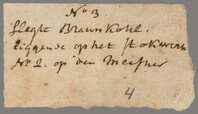 No 3.
Slegte Braunkohl.
liggende op het Stokwerk
No 2. op den Meisner
4